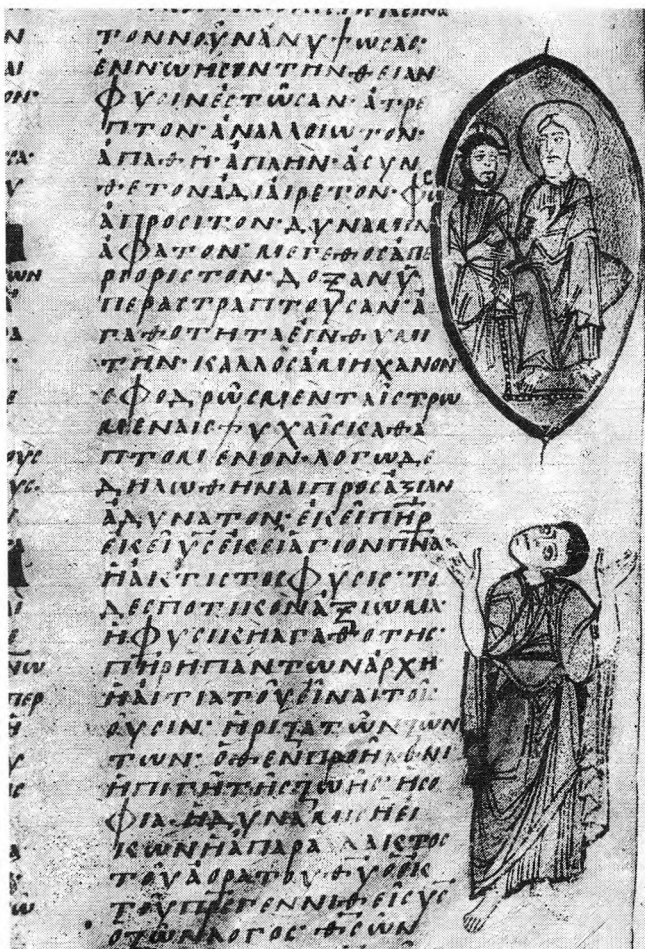 Ν
ΑΙ
ΟΝ·
ΤΑ·
Υ
ΩΝ
ΡΑ
Ε
ΟΥϹ
ΥϹ·
ΑΙ
Ε
ΝΩ
ΠΕΡ
Η
Υ
Α
Ω
ΤΟΝΝΟΥ͂ΝἈΝΥΨΩϹΑϹ·
ἘΝΝΩΗϹΟΝΤΗΝΘΕΙΑΝ
ΦΥϹΙΝΕϹΤΩϹΑΝ· ἌΤΡΕ
ΠΤΟΝ· ἈΝΑΛΛΟΙΩΤΟΝ·
ἈΠΑΘΗ· ἉΠΛΗΝ· ἈϹΥΝ
ΘΕΤΟΝ· ἈΔΙΑΙΡΕΤΟΝ· ΦΩϹ
ἈΠΡΟϹΙΤΟΝ· ΔΥΝΑΜΙΝ
ἌΦΑΤΟΝ· ΜΕΓΕΘΟϹἈΠΕ
ΡΙΟΡΙϹΤΟΝ· ΔΟΞΑΝὙ
ΠΕΡΑϹΤΡΑΠΤΟΥϹΑΝ· Ἀ
ΓΑΘΟΤΗΤΑΕΠΙΘΥΜΗ
ΤΗΝ· ΚΑΛΛΟϹἈΜΗΧΑΝΟΝ
ϹΦΟΔΡΩ͂ϹΜΕΝΤΑΙϹΤΡΩ
ΜΕΝΑΙϹΨΥΧΑΙϹΚΑΘΑ
ΠΤΟΜΕΝΟΝ· ΛΟΓΩΔΕ
ΔΗΛΩΘΗΝΑΙΠΡΟϹἈΞΙΑΝ
ἈΔΥΝΑΤΟΝ· ἘΚΕΙΠΗ̅Ρ
ΕΚΕΙΥ̅Ϲ̅ἘΚΕΙἉΓΙΟΝΠ̅Ν̅Α̅
ἩἌΚΤΙϹΤΟϹΦΥϹΙϹ· ΤΟ
ΔΕϹΠΟΤΙΚΟΝἈΞΙΩΜΑ
ἩΦΥϹΙΚΗἈΓΑΘΟΤΗϹ·
Π̅Η̅Ρ̅ἩΠΑΝΤΩΝἈΡΧΗ
ἩἈΙΤΙΑΤΟΥΕΙΝΑΙΤΟΙϹ
ΟΥϹΙΝ· ἩΡΙΖΑΤΩΝΖΩΝ
ΤΩΝ· ὉΘΕΝΠΡΟΗΛΘΕΝ
ἩΠΗΓΗΤΗϹΖΩΗϹ· ἩϹΟ
ΦΙΑ· ἩΔΥΝΑΜΙϹ· ἩΕΙ
ΚΩΝΗἈΠΑΡΑΛΛΑΚΤΟϹ
ΤΟΥἈΟΡΑΤΟΥΘ̅Υ̅· ὉΕΚ
ΤΟΥΠ̅Ρ̅Ϲ̅ΓΕΝΝΗΘΕΙϹΥ̅Ϲ̅
ὉΖΩΝΛΟΓΟϹ· Θ̅Ϲ̅ΩΝ